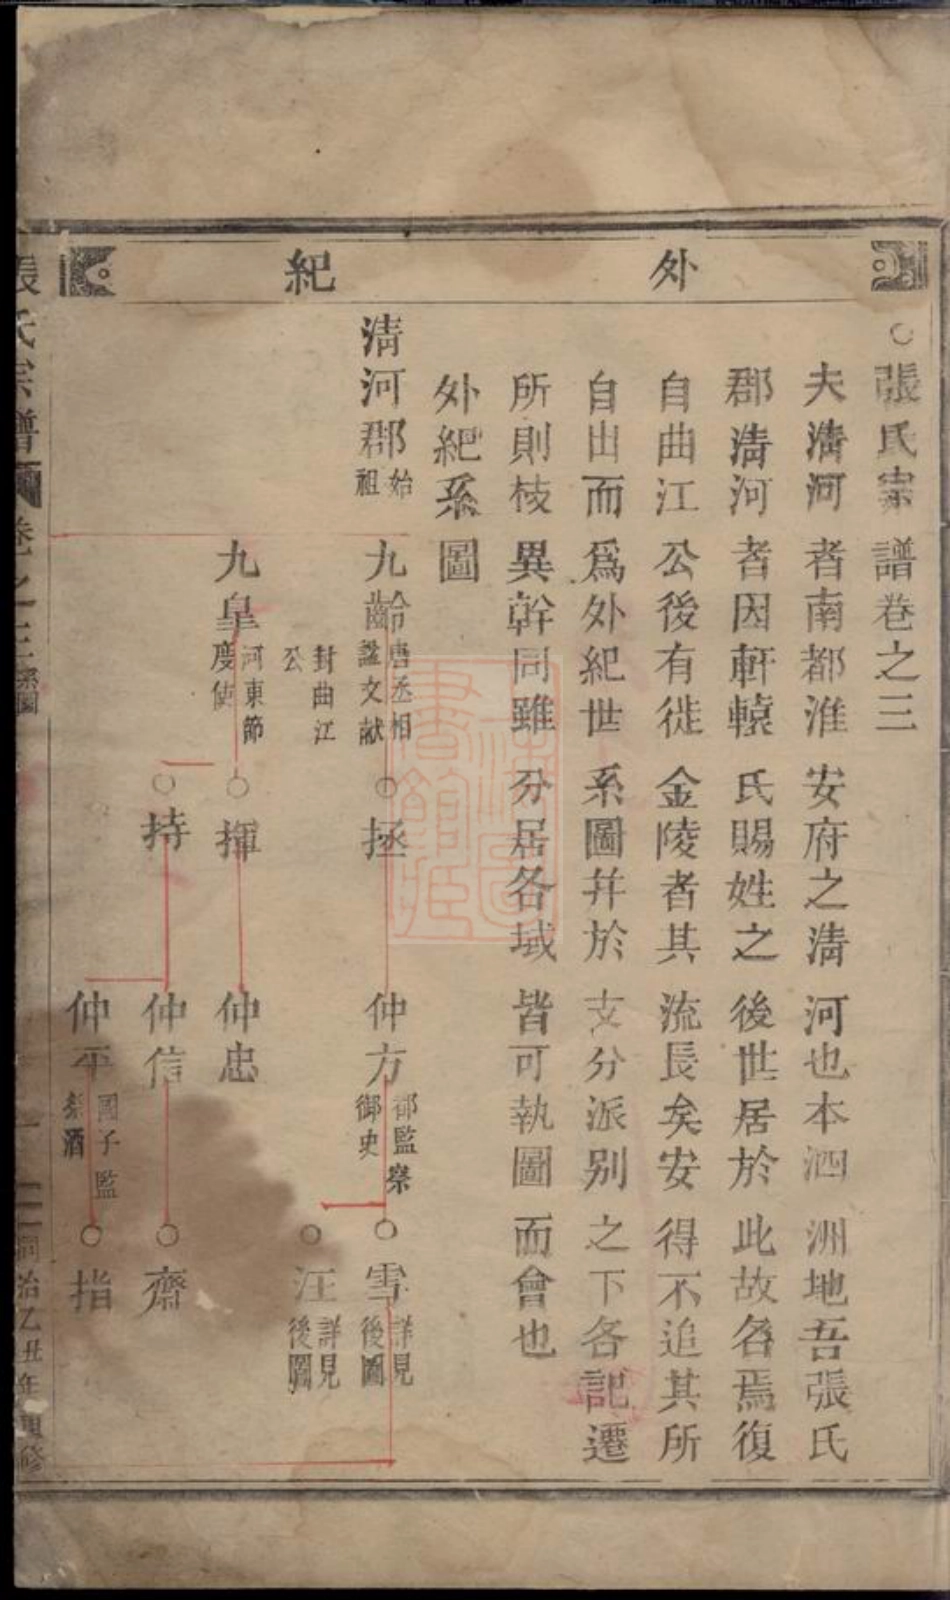 外紀
○張氏宗譜卷之三
夫淸河者南都淮安府之淸河也本泗洲地吾張氏
郡淸河者因軒轅氏賜姓之後世居於此故名焉復
自曲江公後有徙金陵者其流長矣安得不追其所
自出而爲外紀世系圖幷於支分派别之下各記遷
所則枝異幹同雖分居各域皆可執圖而會也
外紀系圖
淸河郡始祖
九齡唐丞相諡文献
封曲江公
○拯
仲方都監察御史
○雪詳見後圖
○汪詳見後圖
九皇河東節度使
○揮
仲忠
○持
仲信
○齋
仲平國子監祭酒
○指
張氏宗譜
卷之三系圖
一
同治乙丑年重修